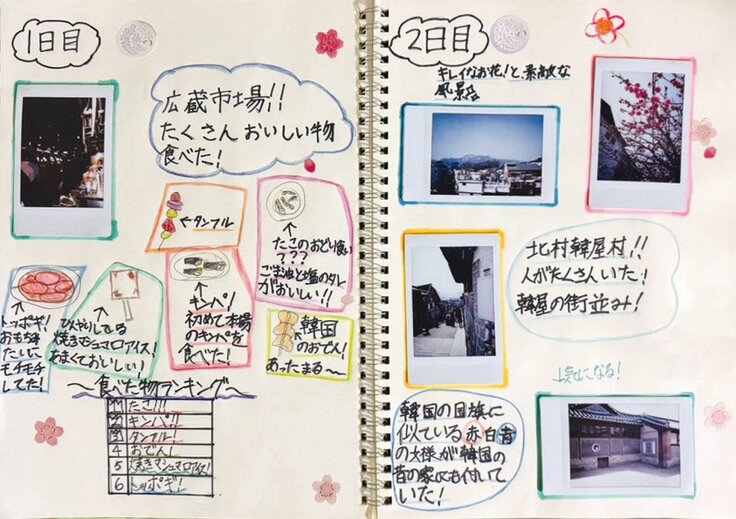 1日目
広蔵市場!!
たくさんおいしい物
食べた!
←タンフル
↑
たこのおどり食い
???
ごま油と塩のタレ
がおいしい!!
↑
トッポギ!
おもちみ
たいに
モチモチ
してた!
↑
ひんやりしている
焼きマシュマロアイス!
あまくておいしい!
↑
キンパ!
初めて本場
のキンパを
食べた!
韓国
のおでん!
あったまる〜
〜食べた物ランキング〜
1 たこ!!!
2 キンパ!!
3 タンフル!
4 おでん!
5 焼きマシュマロアイス!
6 トッポギ!
2日目
キレイなお花!と、素敵な
風景
北村韓屋村!!
人がたくさんいた!
韓屋の街並み!
↓気になる!
韓国の国旗に
似ている赤白青
の文様が韓国の
昔の家にも付いて
いた!